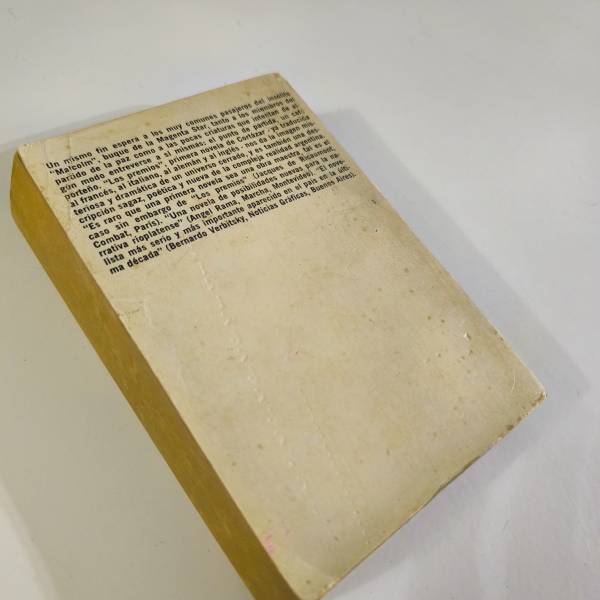 Un mismo fin espera a los muy comunes pasajeros del insólito
"Malcolm", buque de la Magenta Star, tanto a los miembros del
partido de la paz como a las pocas criaturas que intentan de al-
gún modo entreverse a sí mismas: su punto de partida, un café
porteño. "Los premios", primera novela de Cortázar - ya traducida
al francés, al italiano, al alemán y al inglés - nos da la imagen mis-
teriosa y dramática de un universo cerrado, y es también una des-
cripción sagaz, poética y nueva de la compleja realidad argentina.
"Es raro que una primera novela sea una obra maestra. Es el
caso sin embargo de "Los premios" (Jacques de Ricaumont,
Combat, París). "Una novela de posibilidades nuevas para la na-
rrativa rioplatense" (Angel Rama, Marcha, Montevideo). "El nove-
lista más serio y más importante aparecido en el país en la últi-
ma década" (Bernardo Verbitsky, Noticias Gráficas, Buenos Aires).